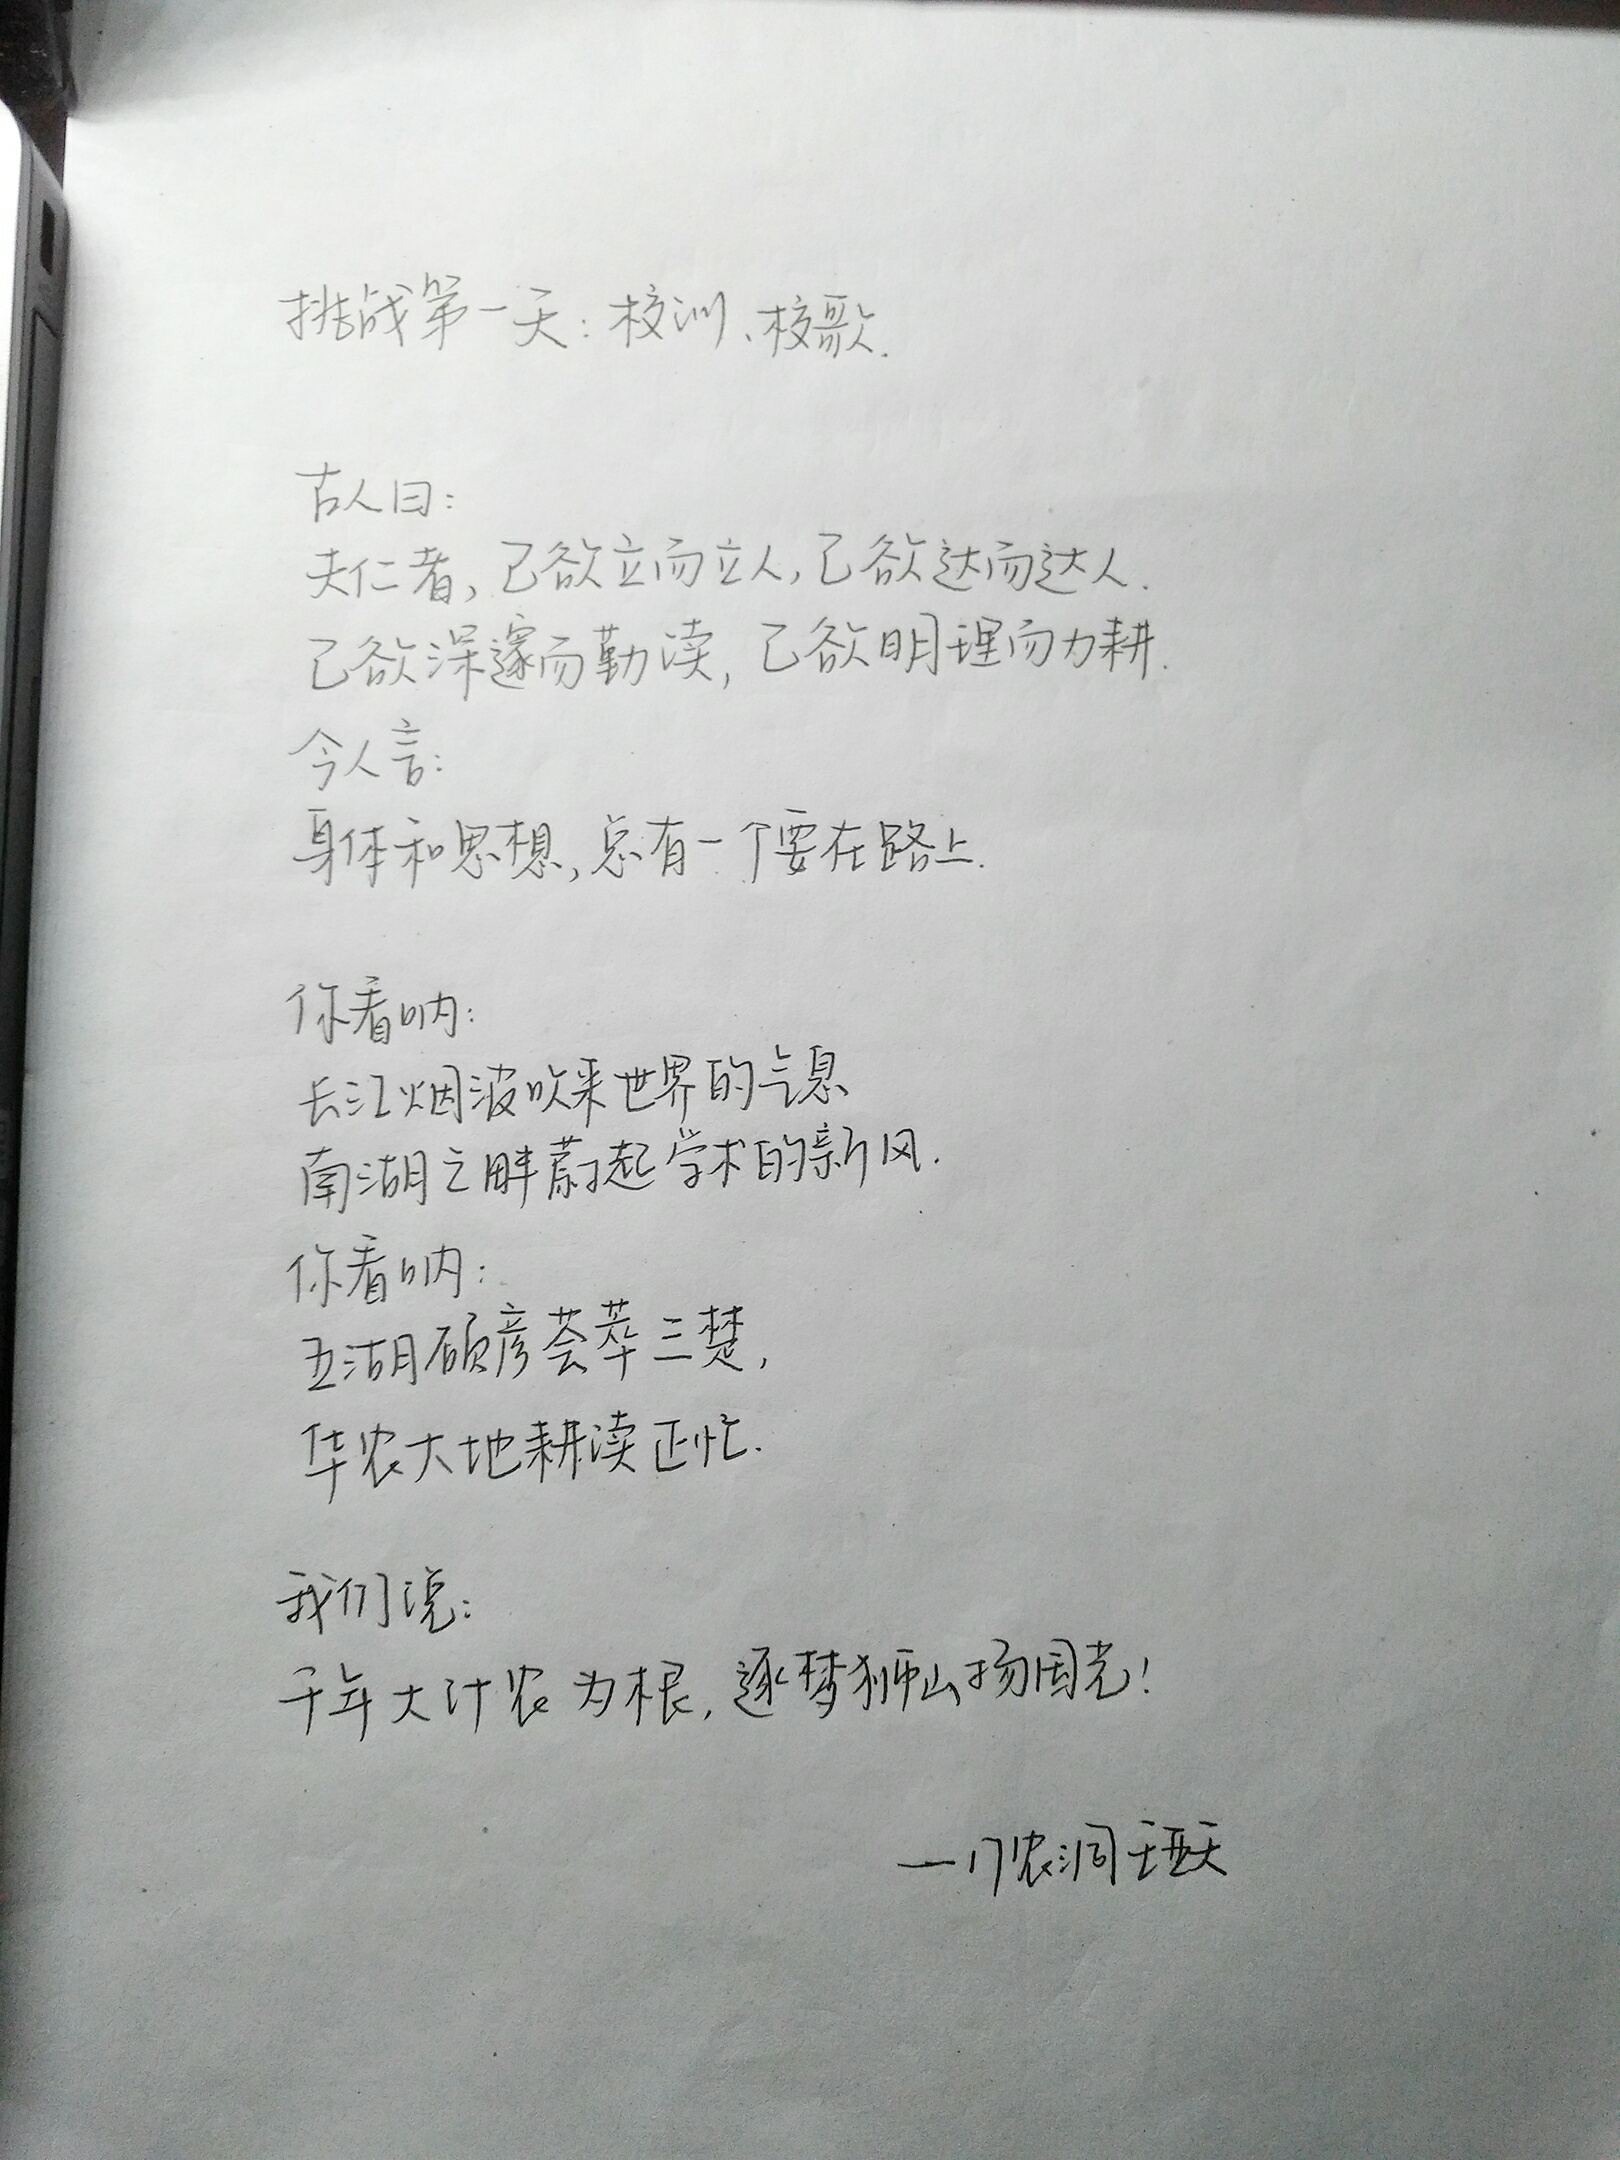 挑战第一天：校训、校歌.
古人曰：
夫仁者，己欲立而立人，己欲达而达人.
己欲深邃而勤读，己欲明理而力耕.
今人言：
身体和思想，总有一个要在路上.
你看呐：
长江烟波吹来世界的气息
南湖之畔蔚起学术的新风.
你看呐：
五湖硕彦荟萃三楚，
华农大地耕读正忙.
我们说：
千年大计农为根，逐梦狮山扬国光！